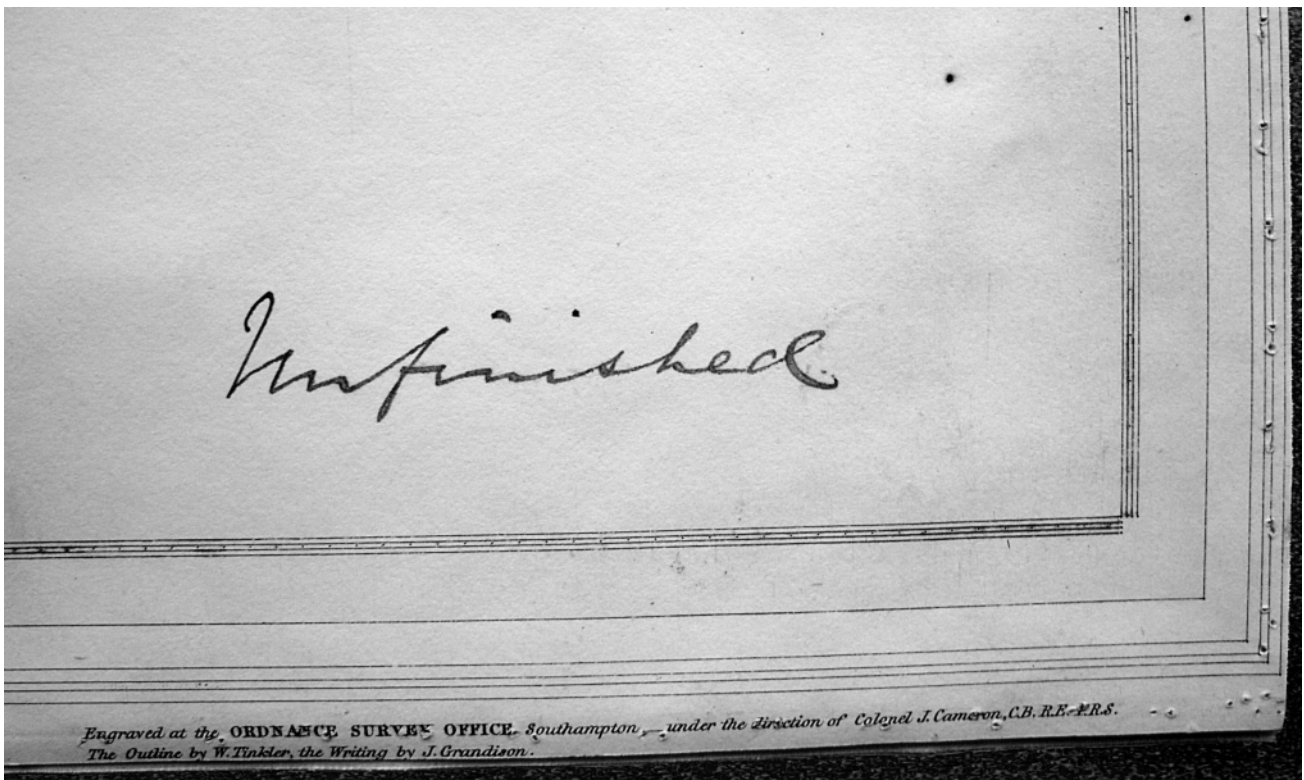 Unfinished
Engraved at the ORDNANCE SURVEY OFFICE. Southampton, under the direction of Colonel J. Cameron, C.B. R.E. F.R.S.
The Outline by W. Tinkler, the Writing by J. Grandison.